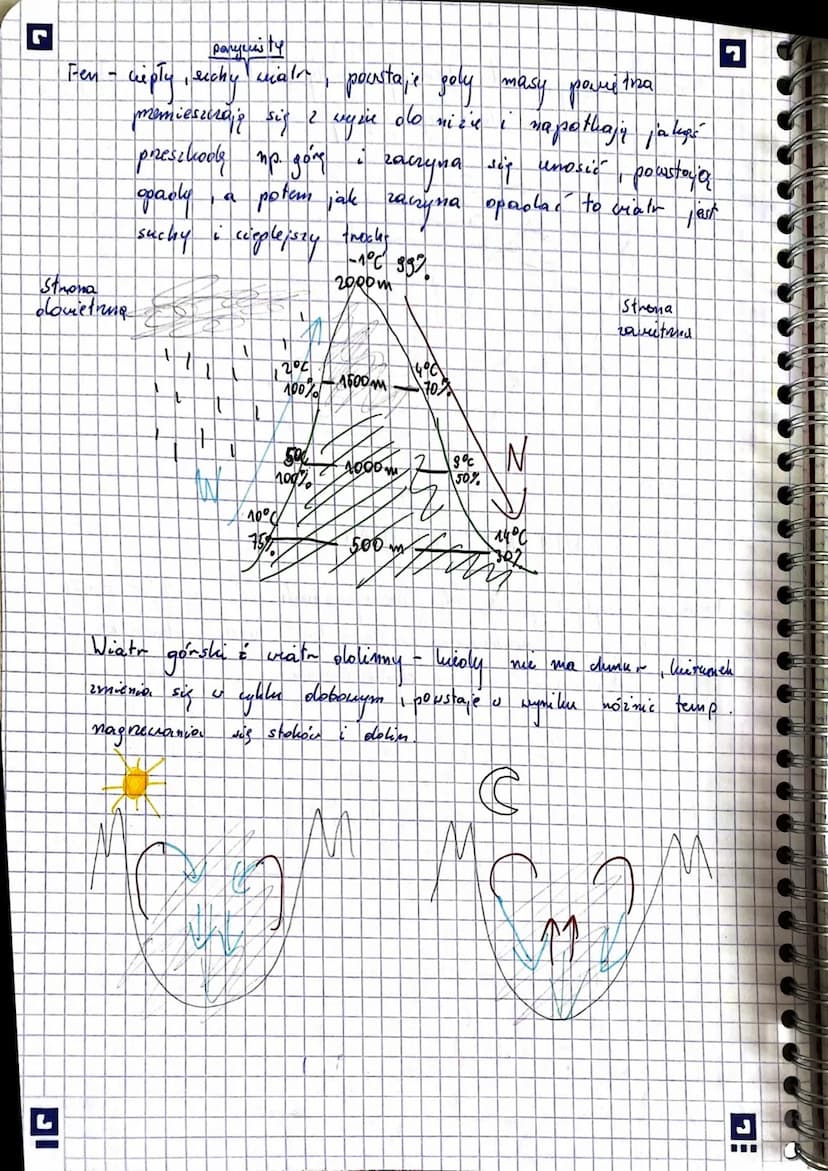 porywisty
Fen - ciepły, suchy wiatr, powstaje gdy masy powietrza
przemieszczają się z wyżu do niżu i napotkają jakąś
przeszkodę np. górę i zaczyna się unosić, powstają
opady, a potem jak zaczyna opadać to wiatr jest
suchy i cieplejszy trochę
-1°C 99%
2000 m
Strona
dowietrzna
Strona
zawietrzna
2°C
100%
1500 m
4°C
70%
5°C
100%
1000 m
9°C
50%
W
N
10°C
75%
500 m
14°C
30%
Wiatr górski i wiatr dolinny - kiedy nie ma chmur, kierunek
zmienia się w cyklu dobowym, powstaje w wyniku różnic temp.
nagrzewania się stoków i dolin.